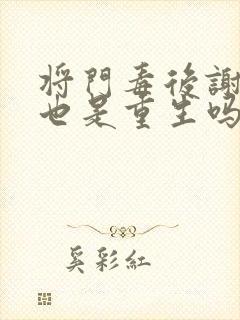 將門毒後謝
也是重生吗
奚彩紅